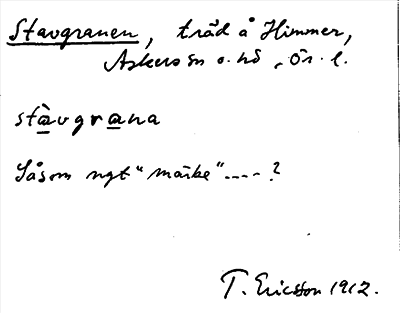 Stavgranen, träd å Himmer,
Askers sn o. hd, Ör. l.
stàvgrana
Såsom ngt "märke"----?
T. Ericsson 1912.